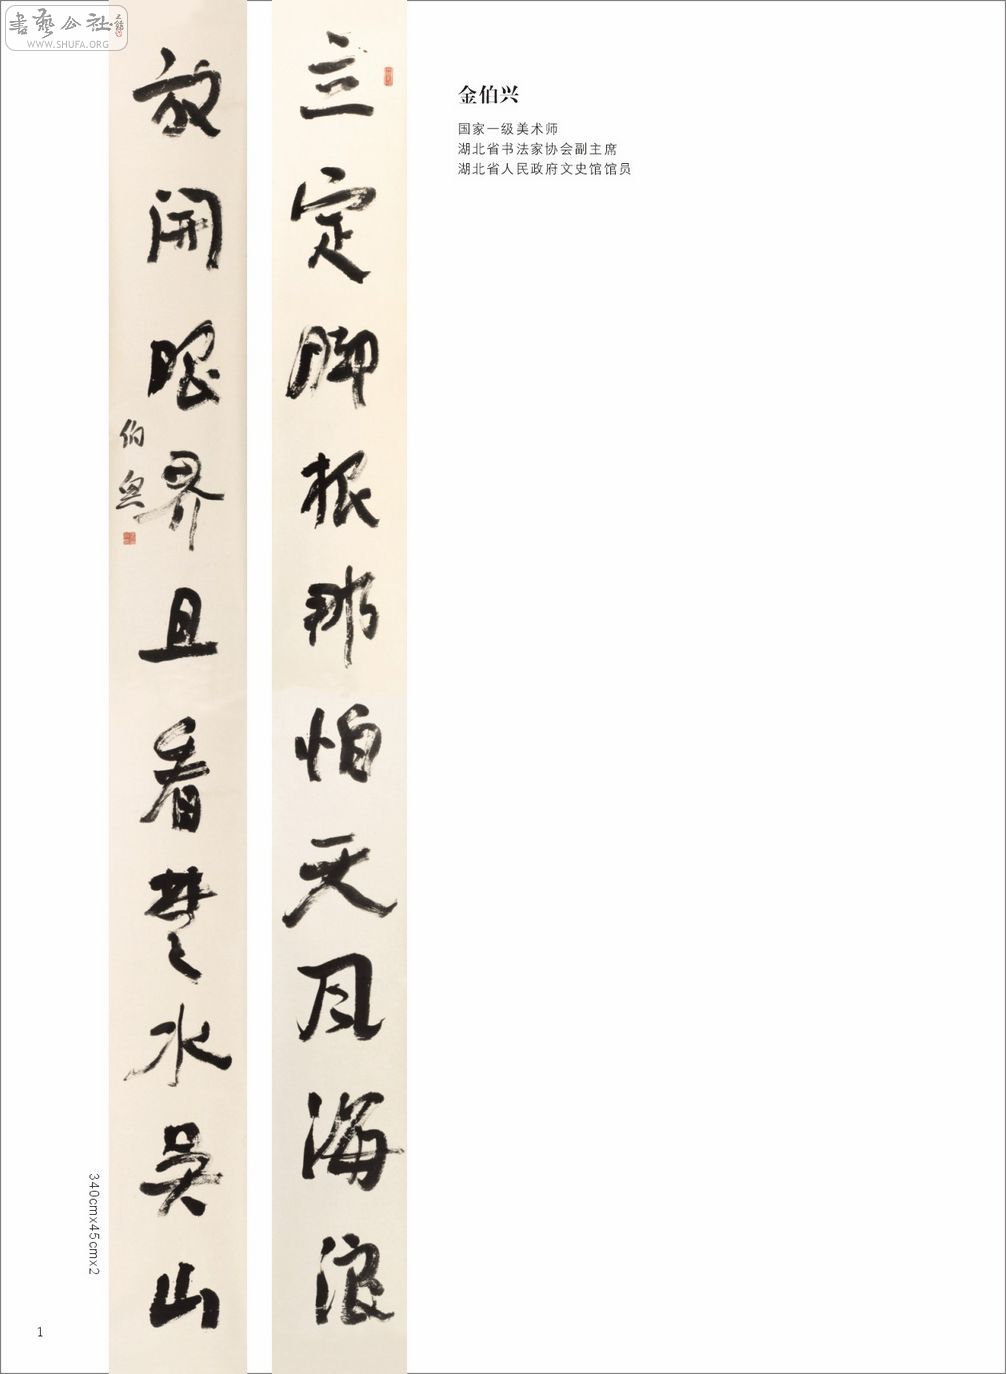 書藝公社
WWW.SHUFA.ORG
立定脚根那怕天风海浪
放開眼界且看楚水吳山
伯興
金伯兴
国家一级美术师
湖北省书法家协会副主席
湖北省人民政府文史馆馆员
340cmx45cmx2
1